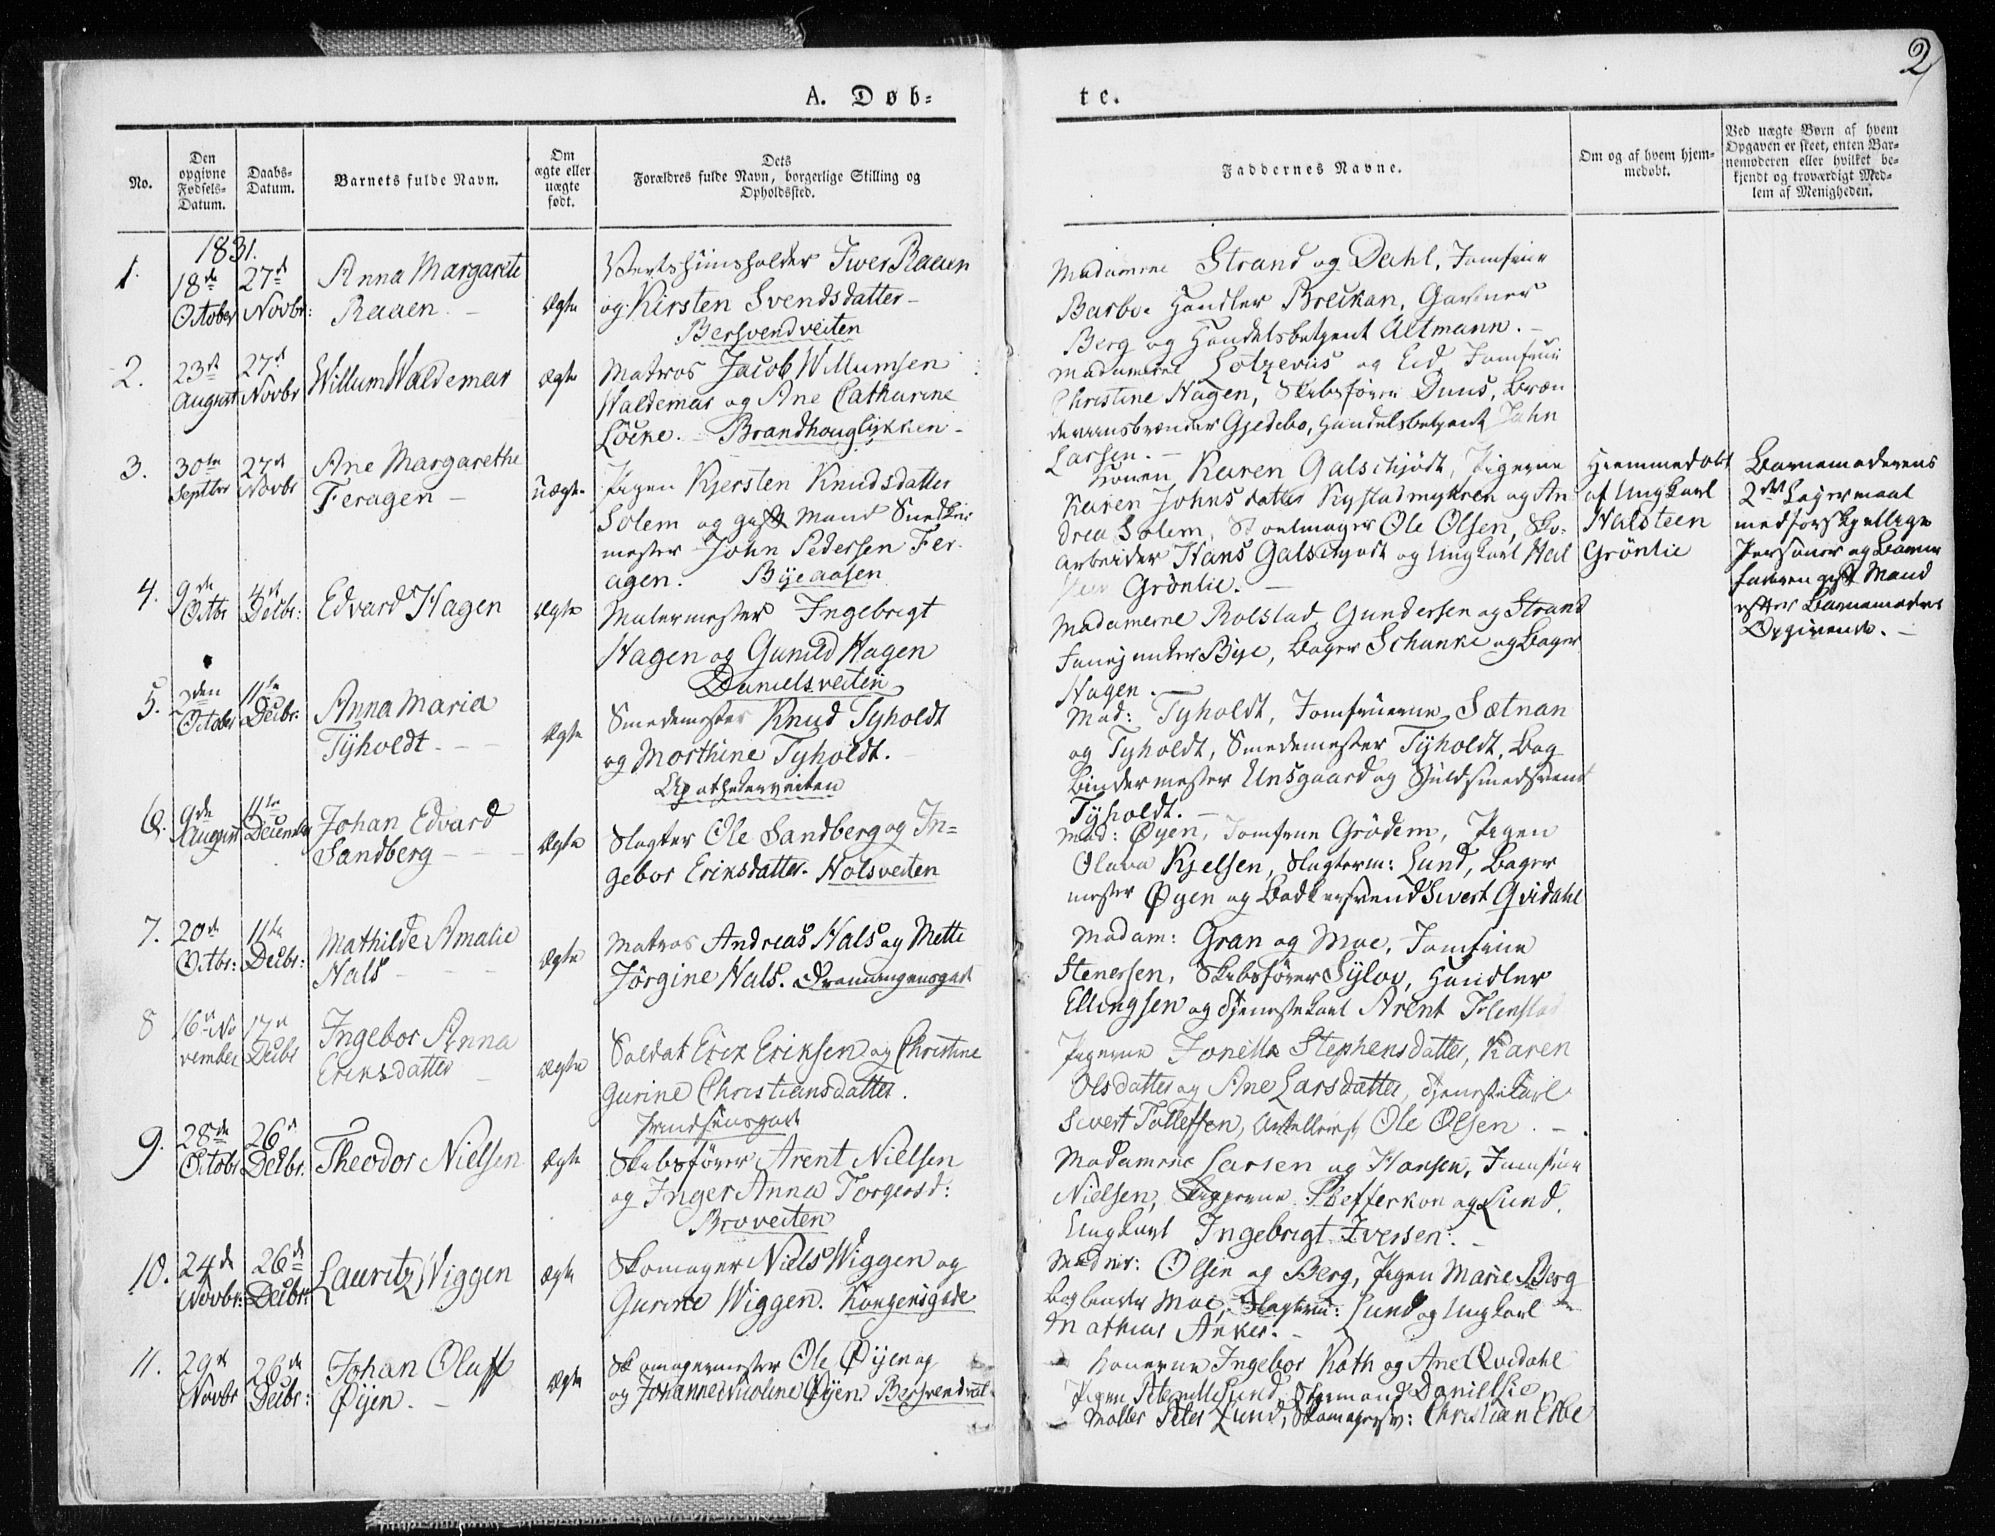 2
A. Døb-
te.
No.
Den opgivne Fødsels-Datum.
Daabs-Datum.
Barnets fulde Navn.
Om ægte eller uægte født.
Dets Forældres fulde Navn, borgerlige Stilling og Opholdssted.
Faddernes Navne.
Om og af hvem hjem-
medøbt.
Ved uægte Børn af hvem
Opgaven er skeet, enten Bar-
nemoderen eller hvilket be-
kjendt og troværdigt Med-
lem af Menigheden.
1831.
1.
18de October
27d Novbr:
Anna Margarete
Raaen
Ægte
Iwer Raaen
og Kirsten Svendsdatter
Bersvendveiten
Madamerne Strand og Dahl, Jomfrue
Handler Breckan, Gartner
Berg og Handelsbetjent Altmann.
2.
23de August
27d Novbr
Willum Waldemar
Ægte
Matros Jacob Willumsen
Waldemar og Ane Cathrine
Löcke. Brandhouglykken
Madamerne Lotzevus og Eid, Jomfrue
Christine Hagen, Skibsfører Duus, Bræn
deviinsbrænder Gjedebo, Handelsbetjent John
Larsen.
3.
30te Septbr
27d Novbr
Ane Margarethe
Feragen
Uægte
Pigen Kjersten Knudsdatter
Solem og gift Mand Snedker
mester John Pedersen Fer-
agen. Byeaasen
Konen Karen Galschjødt, Pigerne
Karen Johnsdatter Kystadmyhren og An
drea Solem, Stoelmager Ole Olsen,
arbeider Hans Galschjødt og Ungkarl Hal
steen Grönlie.
Hiemmedøbt
af Ungkarl
Halsteen
Grönlie
Barnemoderens
2det Leiermaal
med forskjellige
Personer og Barne
faderen gift Mand
efter Barnemoderens
Opgivende.
4.
9de Octbr
4de Decbr:
Edvard Hagen
Ægte
Malermester Ingebrigt
Hagen og Gunild Hagen
Danielsveiten
Madamerne Rolstad, Gundersen og Strand
Fanejunker Bye, Bager Schanke og Bager
Hagen.
5.
2den October
11te Decbr.
Anna Maria
Tyholdt
Ægte
Smedemester Knud Tyholdt
og Morthine Tyholdt.
Apothekerveiten
Mad: Tyholdt, Jomfruerne Sætnan
og Tyholdt, Smedemester Tyholdt, Bog
bindermester Unsgaard og Guldsmedsvend
Tyholdt.
6.
9de August
11te December
Johan Edvard
Sandberg
Ægte
Slagter Ole Sandberg og In=
gebor Eriksdatter. Holsveiten
Mad: Øyen, Jomfrue Grödem, Pigen
Olava Kjelsen, Slagterm: Lund, Bager
mester Øyen og Bødkersvend Sivert Qvidahl
7.
20de Octbr:
11te Decbr:
Mathilde Amalie
Hals
Ægte
Matros Andreas Hals og Mette
Jörgine Hals.
Madam: Gran og Moe, Jomfrue
Stenersen, Skibsfører Sylov, Handler
Ellingsen og Tjenestekarl Arent
8
16de November
17de Decbr
Ingebor Anna
Eriksdatter
Ægte
Soldat Eric Eriksen og Christine
Gurine Christiansdatter.
Pigerne Jonilla Stephensdatter, Karen
Olsdatter og Ane Larsdatter, Tjenestekarl
Sivert Tollefsen, Ole Olsen.
9.
28de Octobr
26d Decbr.
Theodor Nielsen
Ægte
Skibsfører Arent Nielsen
og Inger Anna Torgersd:
Broveiten
Madamerne Larsen og Hansen, Jomfrue
Nielsen, Skipperne og Lund,
Ungkarl Ingebrigt Iversen.
10.
24de Novbr:
26de Decbr:
Lauritz Wiggen
Ægte
Skomager Niels Wiggen og
Gurine Wiggen. Kongensgade
Madmr: Olsen og Berg, Pigen Marie Berg
Moe, Slagterm: Lund og Ungkarl
Mathias Anker.
11.
29de Novbr
26de Decbr:
Johan Oluff
Øyen.
Ægte
Skomagermester Ole Øyen og
og Johanne Nicoline Øyen. Bersvendveit
Konerne Ingebor Roth og Ane Qvidahl
Pigen Lund, Styrmand Danielsie
Møller Peter Lund, Skomagersv: Christian Ebbe